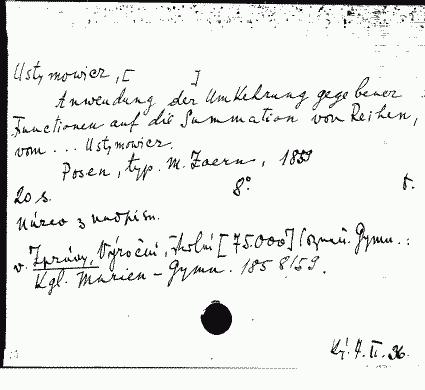 Ustymowicz, [ ]
Anwendung der Umkehrung gegebener
Functionen auf die Summation von Reihen,
vom ... Ustymowicz.
Posen, typ. M. Zoern, 1859
20 s. 8°. t.
Název z nadpisu.
v. Zprávy, Výroční, školní [75.000] Gymn. :
Kgl. Marien-Gymn. 1858/59.
Ký. 4. II. 36.